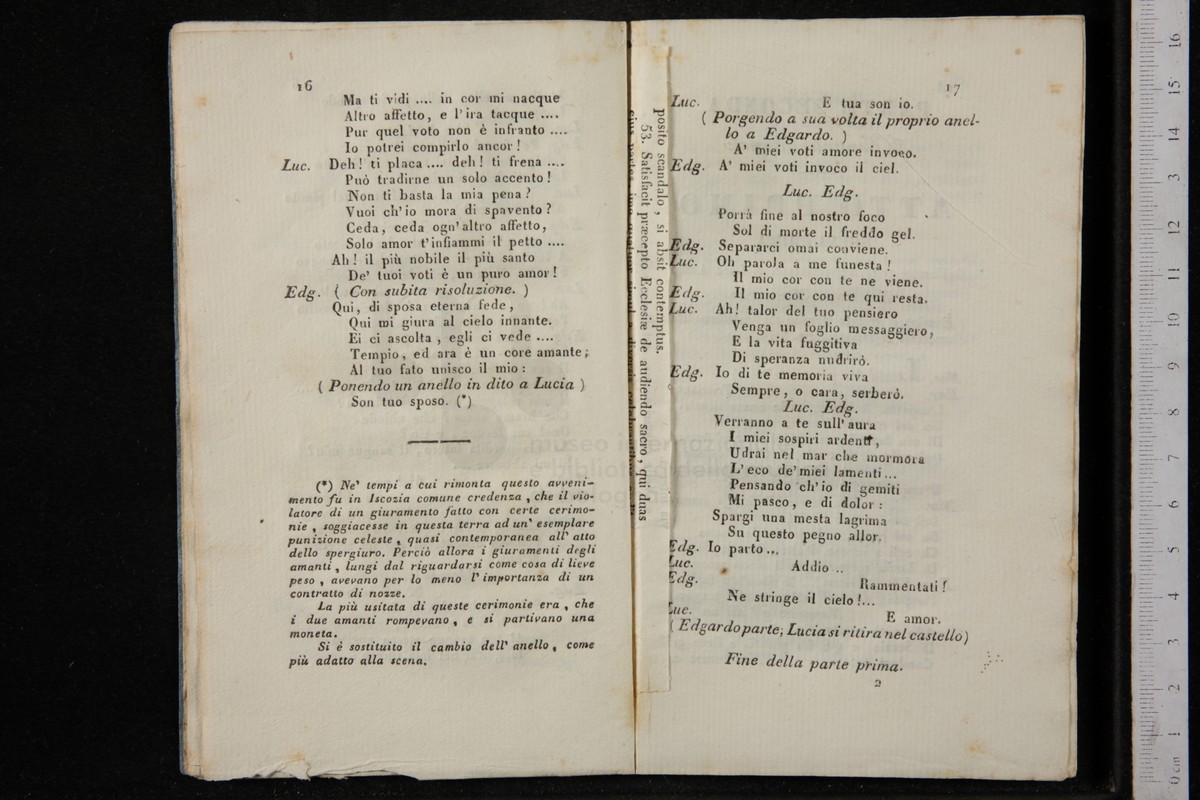 16
Ma ti vidi .... in cor mi nacque
Altro affetto, e l'ira tacque ....
Pur quel voto non è infranto ....
Io potrei compirlo ancor !
Luc. Deh ! ti placa .... deh ! ti frena ....
Può tradirne un solo accento !
Non ti basta la mia pena ?
Vuoi ch'io mora di spavento ?
Ceda, ceda ogn'altro affetto,
Solo amor t'infiammi il petto ....
Ah ! il più nobile il più santo
De' tuoi voti è un puro amor !
Edg. ( Con subita risoluzione. )
Qui, di sposa eterna fede,
Qui mi giura al cielo innante.
Ei ci ascolta , egli ci vede ....
Tempio, ed ara è un core amante ;
Al tuo fato unisco il mio :
( Ponendo un anello in dito a Lucia )
Son tuo sposo. (*)
(*) Ne' tempi a cui rimonta questo avveni-
mento fu in Iscozia comune credenza , che il vio-
latore di un giuramento fatto con certe cerimo-
nie , soggiacesse in questa terra ad un' esemplare
punizione celeste , quasi contemporanea all' atto
dello spergiuro. Perciò allora i giuramenti degli
amanti , lungi dal riguardarsi come cosa di lieve
peso , avevano per lo meno l' importanza di un
contratto di nozze.
La più usitata di queste cerimonie era , che
i due amanti rompevano , e si partivano una
moneta.
Si è sostituito il cambio dell' anello , come
più adatto alla scena.
posito scandalo , si absit contemptus.
53. Satisfacit præcepto Ecclesiæ de audiendo sacro, qui duas
17
Luc. E tua son io.
( Porgendo a sua volta il proprio anel-
lo a Edgardo. )
A' miei voti amore invoco.
Edg. A' miei voti invoco il ciel.
Luc. Edg.
Porrà fine al nostro foco
Sol di morte il freddo gel.
Edg. Separarci omai conviene.
Luc. Oh parola a me funesta !
Il mio cor con te ne viene.
Edg. Il mio cor con te qui resta.
Luc. Ah! talor del tuo pensiero
Venga un foglio messaggiero,
E la vita fuggitiva
Di speranza nudrirò.
Edg. Io di te memoria viva
Sempre, o cara, serberò.
Luc. Edg.
Verranno a te sull'aura
I miei sospiri ardenti,
Udrai nel mar che mormora
L'eco de'miei lamenti...
Pensando ch'io di gemiti
Mi pasco, e di dolor :
Spargi una mesta lagrima
Su questo pegno allor.
Edg. Io parto...
Luc. Addio ..
Edg. Rammentati !
Ne stringe il cielo !...
Luc. E amor.
( Edgardo parte; Lucia si ritira nel castello )
Fine della parte prima.
2
museo internazionale
e biblioteca della
0 cm 1 2 3 4 5 6 7 8 9 10 11 12 13 14 15 16